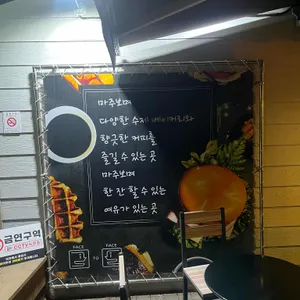 마주보며
다양한 수제 베이커리와
향긋한 커피를
즐길 수 있는 곳
마주보며
한 잔 할 수 있는
여유가 있는 곳
FACE
TO
FACE
금연구역